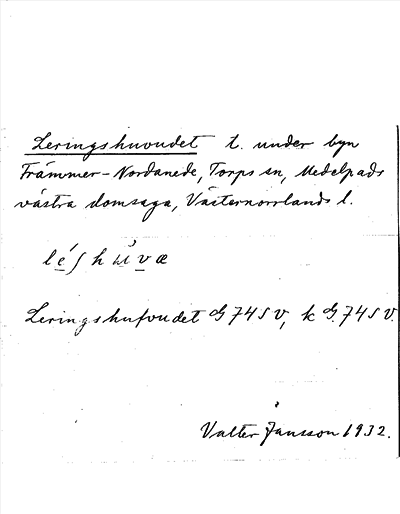 Leringshuvudet t. under byn
Främmer-Nordanede, Torps sn, Medelpads
västra domsaga, Västernorrlands l.
léʃhu̇væ
Leringshufvudet G 74 S V, k G. 74 S V.
Valter Jansson 1932.